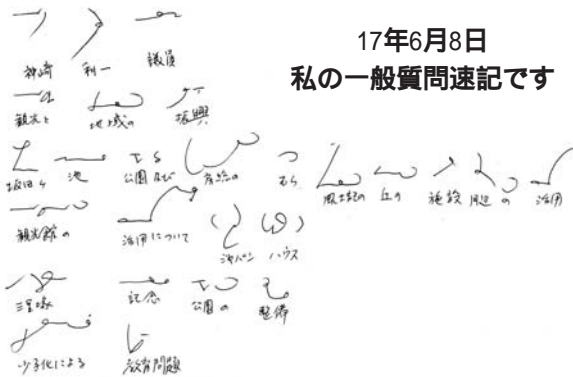 17年6月8日
私の一般質問速記です
神崎 利一 議員
観光と 地域の 振興
坂田ヶ 池 公園及び 房総の むら 風土記の 丘の 施設 周辺 の 活用
観光館の 活用について
ハウス
三里塚 記念 公園の 整備
少子化による 教育問題